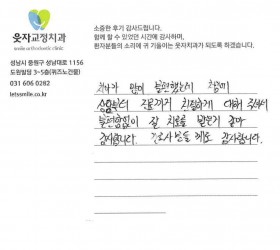 웃자교정치과
smile orthodontic clinic
소중한 후기 감사드립니다.
함께 할 수 있었던 시간에 감사하며,
환자분들의 소리에 귀 기울이는 웃자치과가 되도록 하겠습니다.
성남시 중원구 성남대로 1156
도원빌딩 3~5층(위즈노건물)
031 606 0282
letssmile.co.kr
치아가 많이 불편했는데
상담부터 진료까지 친절하게 대해 주셔서
불편함없이 잘 치료를 받은거 같아
감사합니다. 간호사분들께도 감사합니다.